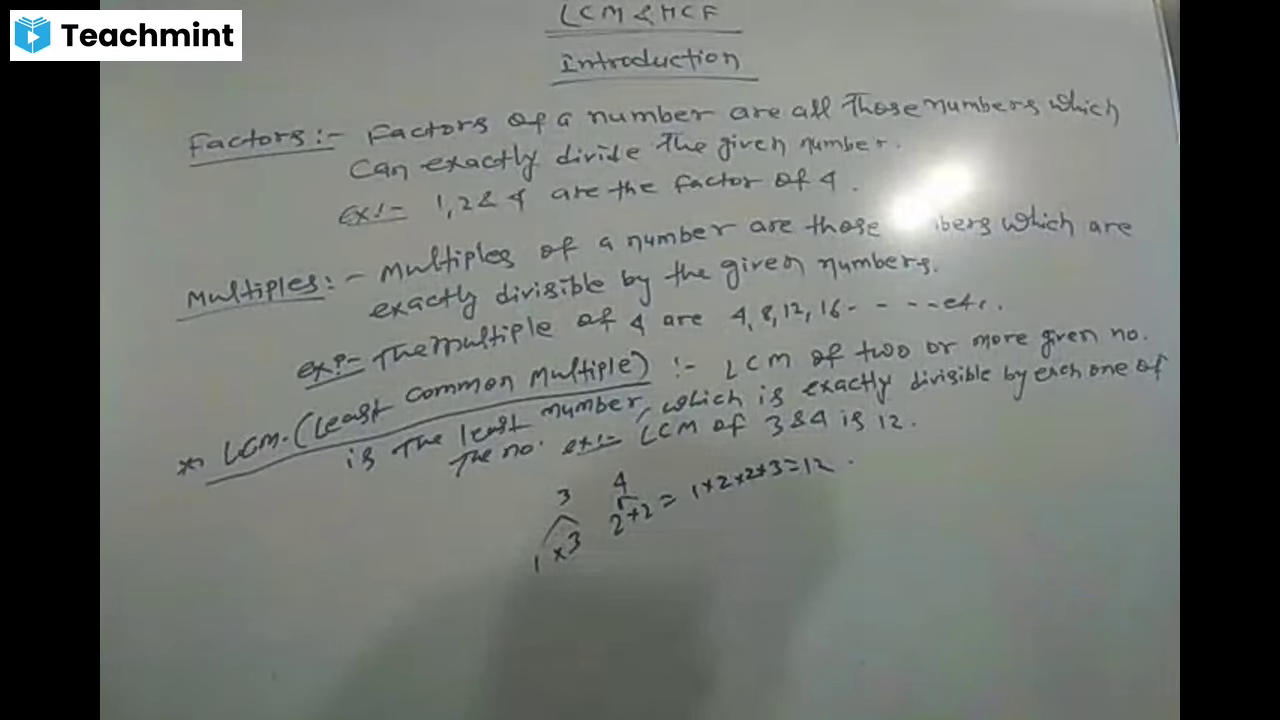 Teachmint
LCM & HCF
Introduction
Factors:- Factors of a number are all those numbers which
can exactly divide the given number.
Ex:- 1, 2 & 4 are the factor of 4.
Multiples:- Multiples of a number are those bers which are
exactly divisible by the given numbers.
ex:- The multiple of 4 are 4, 8, 12, 16- - - --etc.
* LCM. (Least common Multiple) :- LCM of two or more given no.
is the least number, which is exactly divisible by each one of
the no. ex:- LCM of 3 & 4 is 12.
3 4
1 × 3 2×2 = 1×2×2×3=12.